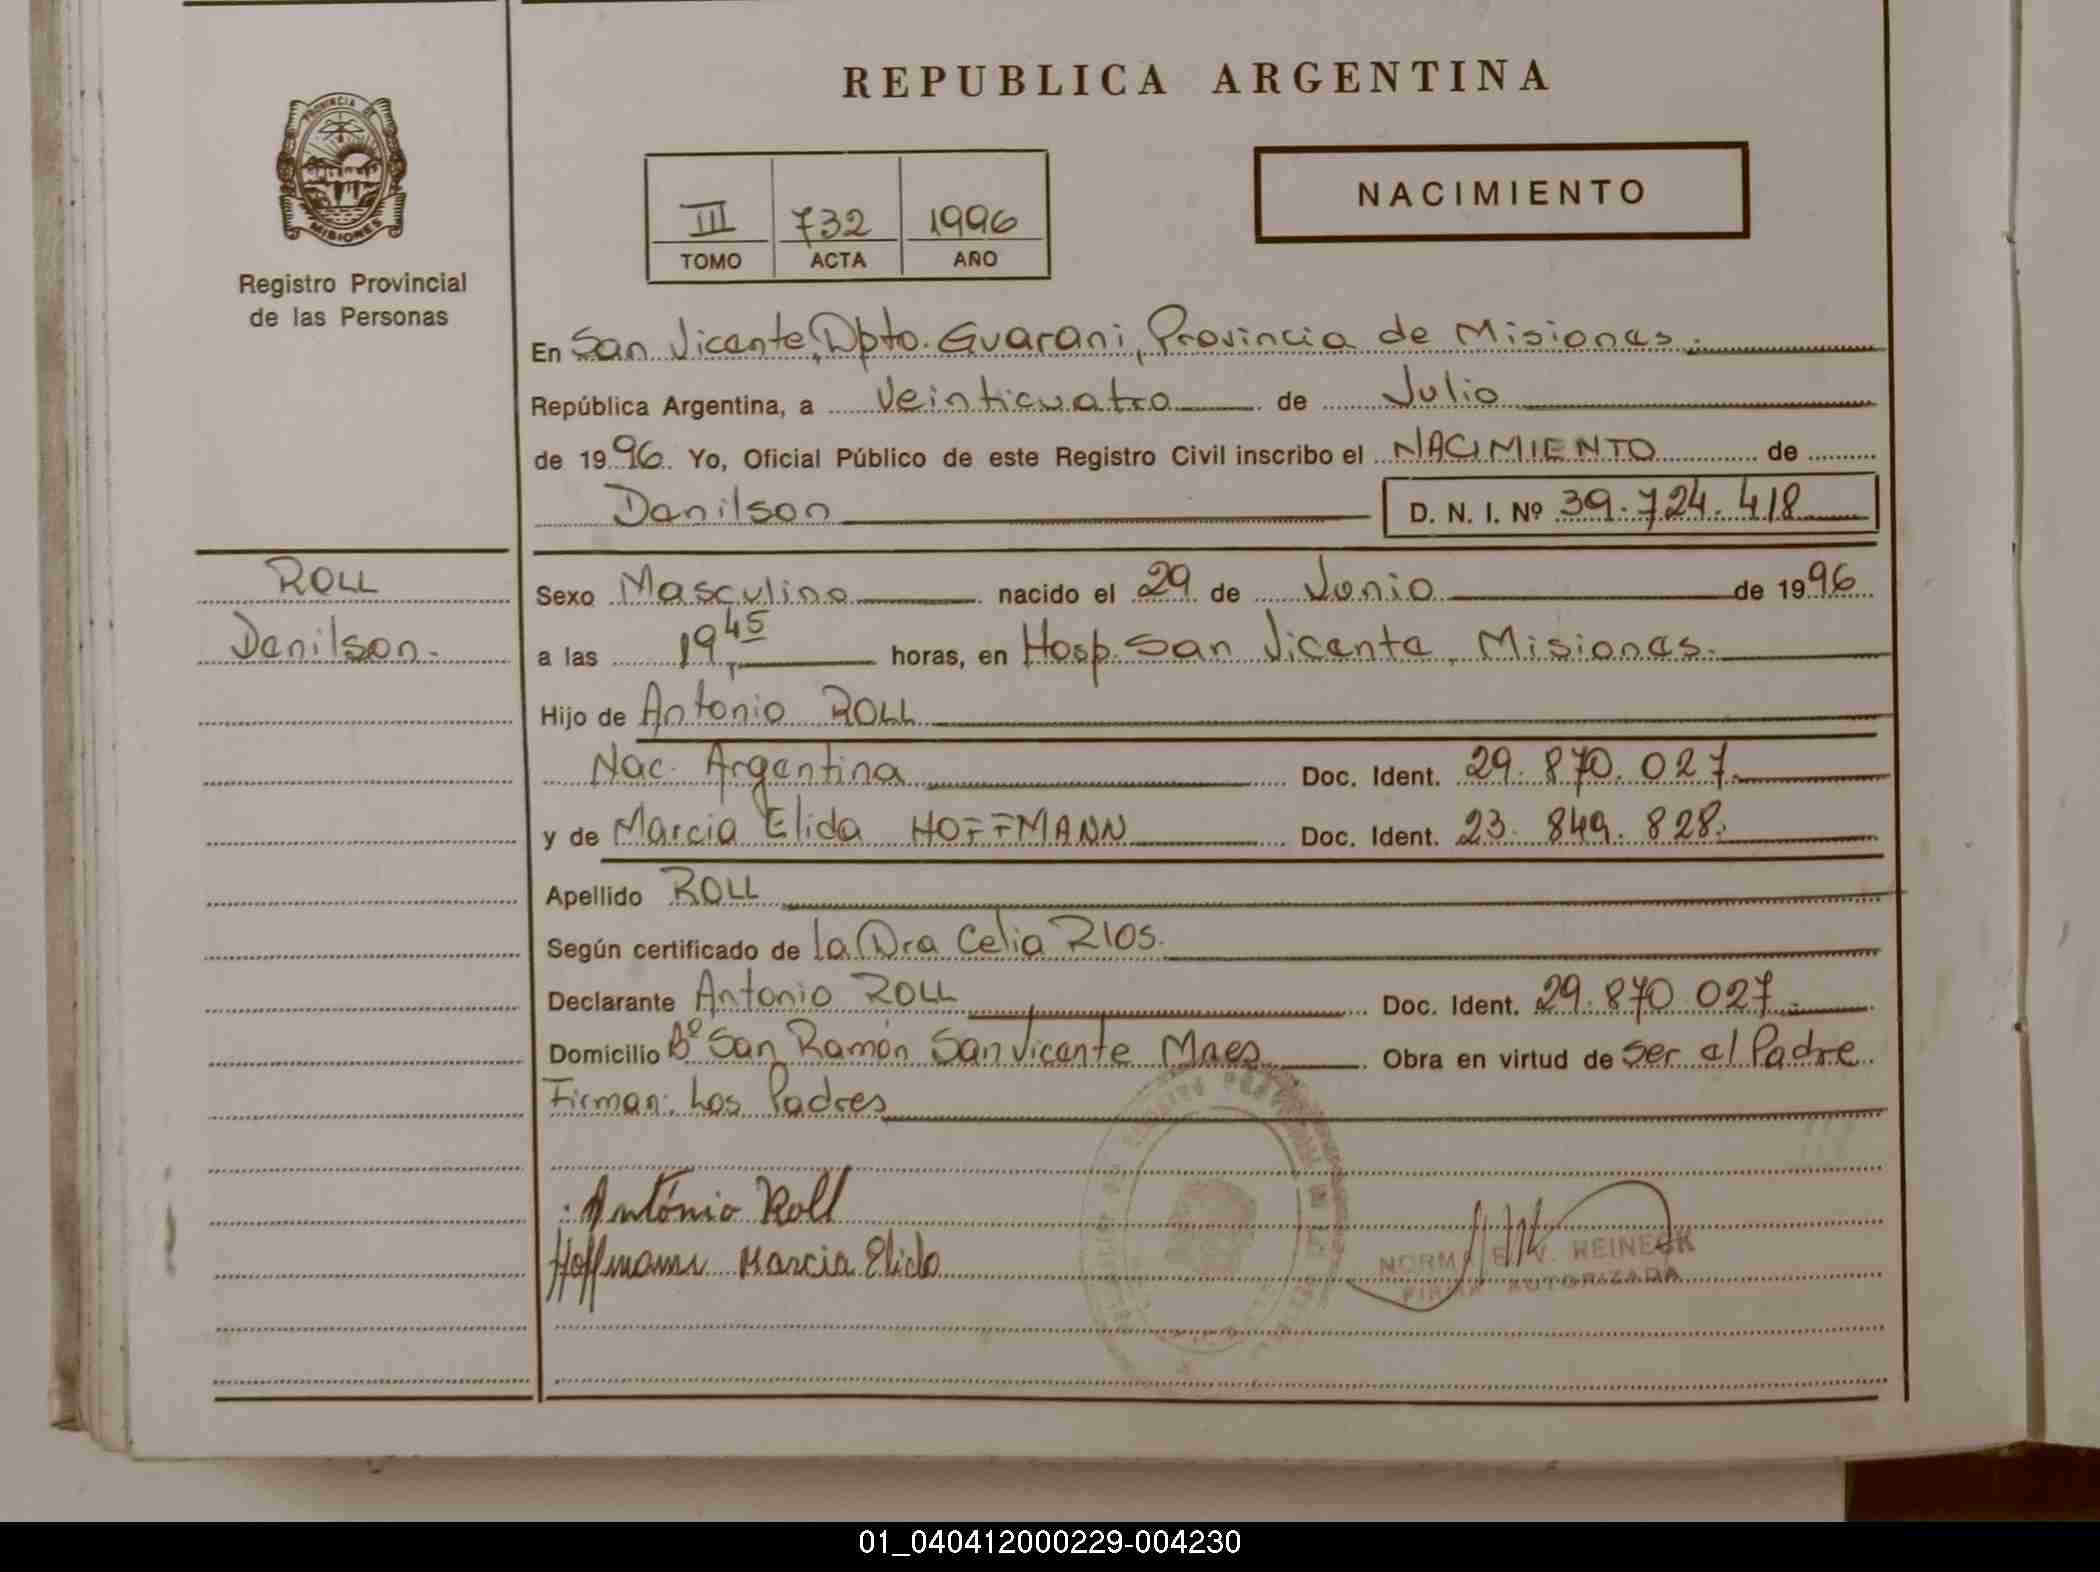 REPUBLICA ARGENTINA
PROVINCIA DE
MISIONES
Registro Provincial
de las Personas
III 732 1996
TOMO ACTA AÑO
NACIMIENTO
En San Vicente, Dpto. Guarani, Provincia de Misiones.
República Argentina, a Veinticuatro de Julio
de 1996. Yo, Oficial Público de este Registro Civil inscribo el NACIMIENTO de
Danilson D. N. I. Nº 39.724.418
ROLL
Danilson.
Sexo Masculino nacido el 29 de Junio de 1996
a las 19,45 horas, en Hosp. San Vicente, Misiones.
Hijo de Antonio ROLL
Nac. Argentina Doc. Ident. 29.870.027.
y de Marcia Elida HOFFMANN Doc. Ident. 23.849.828.
Apellido ROLL
Según certificado de la Dra Celia RIOS.
Declarante Antonio ROLL Doc. Ident. 29.870.027.
Domicilio Bº San Ramón San Vicente Mnes Obra en virtud de ser el Padre
Firman: Los Padres
António Roll
Hoffmann Marcia Elida
NORMA E. V. REINECK
FIRMA AUTORIZADA
01_040412000229-004230